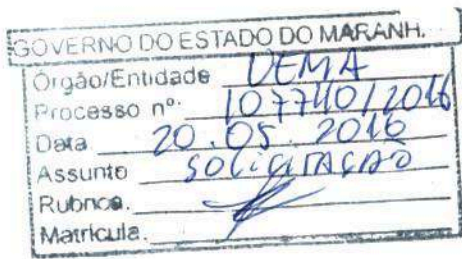 GOVERNO DO ESTADO DO MARANH.
Órgão/Entidade UEMA
Processo nº. 107740/2016
Data 20.05.2016
Assunto SOLICITAÇÃO
Rubrica.
Matrícula.